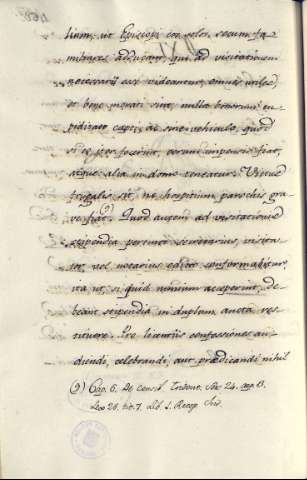 tium, ut Episcopi eos solos secum fa-
miliares adducant, qui ad visitationem
necessarii esse videantur, omnes urbes,
et bene morati sint, nulla bonorum cu-
piditate capti, ac sine vehiculo, quod
si eo per fuerint, eorum impensis fiat,
atque alia in domo Victus
frugalis sit, ne hospitium parochis gra-
ve fiat. Quod autem ad visitatione
stipendia pertinet secretarius, visita-
tor, vel notarius edicto conformabitur,
ita ut, si quid nimium acceperint, de-
beant stipendia in duplum aucta res-
tituere. Pro licentiis confessiones au-
diendi, celebrandi, aut prædicandi nihil
(9) Cap. 6. de cens. Trident. Ses. 24. cap. 3.
Leo 26. tit. 7. Lib. 1. Recop. Ind.